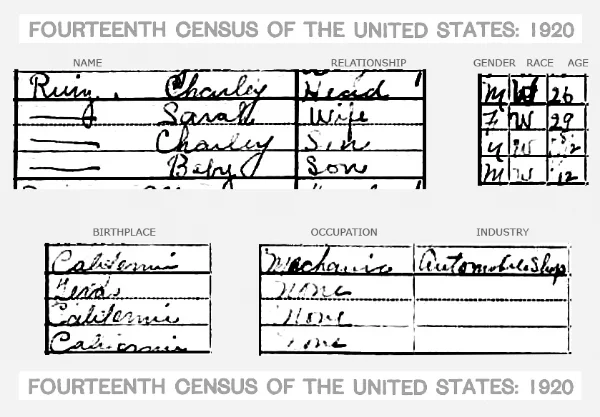 FOURTEENTH CENSUS OF THE UNITED STATES: 1920
NAME RELATIONSHIP GENDER RACE AGE
Ruiz, Charley Head M W 26
Sarah Wife F W 29
Charley Son M W /12
Baby Son M W /12
BIRTHPLACE OCCUPATION INDUSTRY
California Mechanic Automobile Shop
None
California None
California None
FOURTEENTH CENSUS OF THE UNITED STATES: 1920